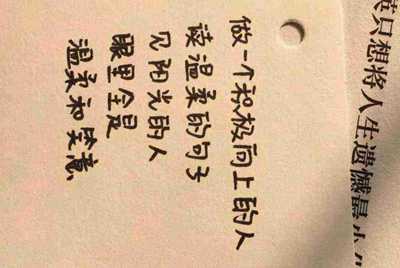 只想將人生遺憾最小
做一个积极向上的人
读温柔的句子
见阳光的人
眼里全是
温柔和笑意